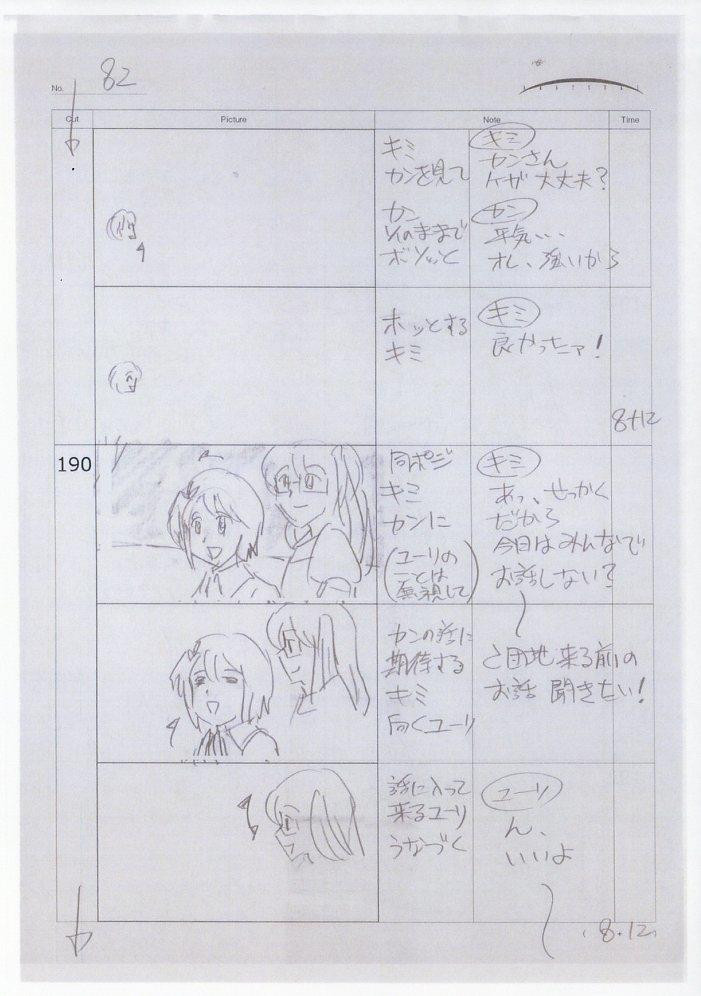 No. 82
Cut Picture Note Time
キミ
カンを見て
カン
ソのままで
ボソッと
キミ
カンさん
ケガ 大丈夫?
カン
平気、、
オレ、強いから
ホッとする
キミ
キミ
良かったァ!
8+12
190
同ポジ
キミ
カンに
(ユーリの
ことは
無視して)
キミ
あっ、せっかく
だから
今日はみんなで
お話しない?
カンの話に
期待する
キミ
向くユーリ
団地来る前の
お話 聞きたい!
話に入って
来るユーリ
うなづく
ユーリ
ん、
いいよ
8+12